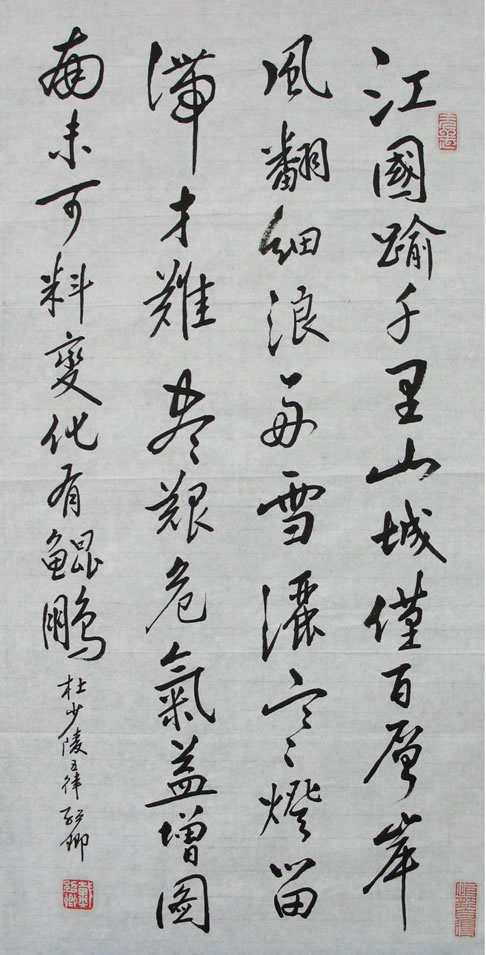 江國踰千里山城僅百層岸
風翻細浪舟雪灑寒燈留
滯才難尽艱危氣益增圖
南未可料變化有鯤鵬
杜少陵五律 紹卿